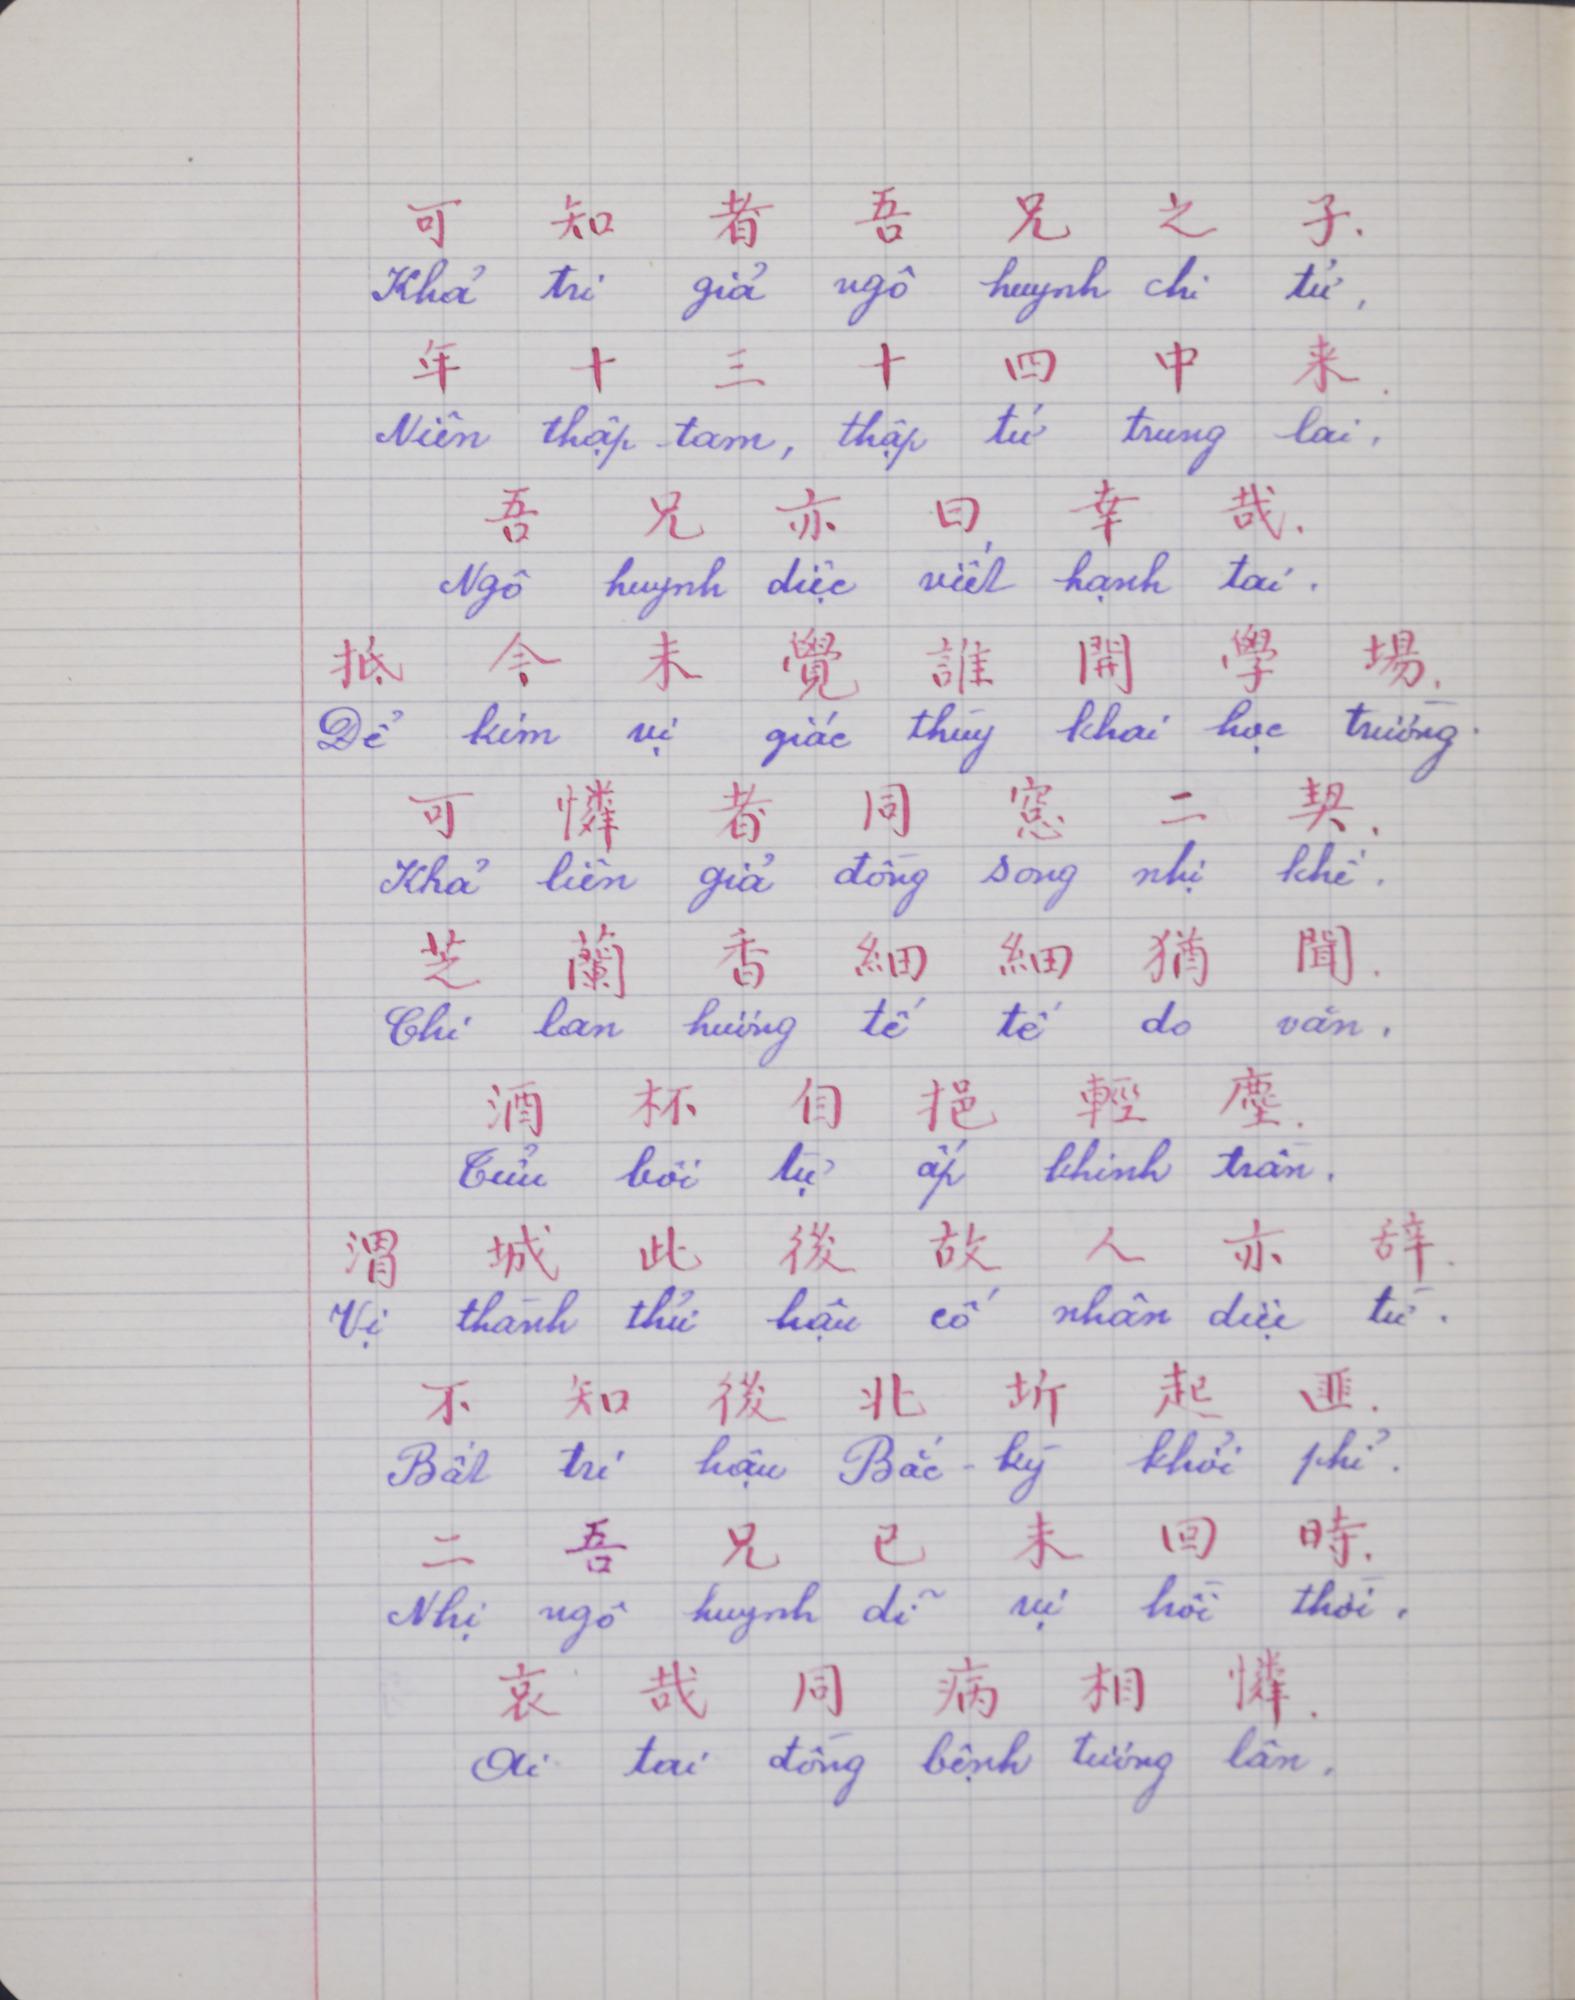 可 知 者 吾 兄 之 子.
Khả tri giả ngô huynh chi tử,
年 十 三 十 四 中 来.
Niên thập tam, thập tứ trung lai,
吾 兄 亦 曰 幸 哉.
Ngô huynh diệc viết hạnh tai.
抵 今 未 覺 誰 開 學 場.
Để kim vị giác thùy khai học trường.
可 憐 者 同 窓 二 契.
Khả liên giả đồng song nhị khế.
芝 蘭 香 細 細 猶 聞.
Chi lan hương tế tế do văn.
酒 杯 自 挹 輕 塵.
Tửu bôi tự ấp khinh trần.
渭 城 此 後 故 人 亦 辞.
Vị thành thử hậu cố nhân diệc từ.
不 知 後 北 圻 起 匪.
Bất tri hậu Bắc-kỳ khởi phỉ.
二 吾 兄 已 未 回 時.
Nhị ngô huynh dĩ vị hồi thời.
哀 哉 同 病 相 憐.
Ai tai đồng bệnh tương lân.